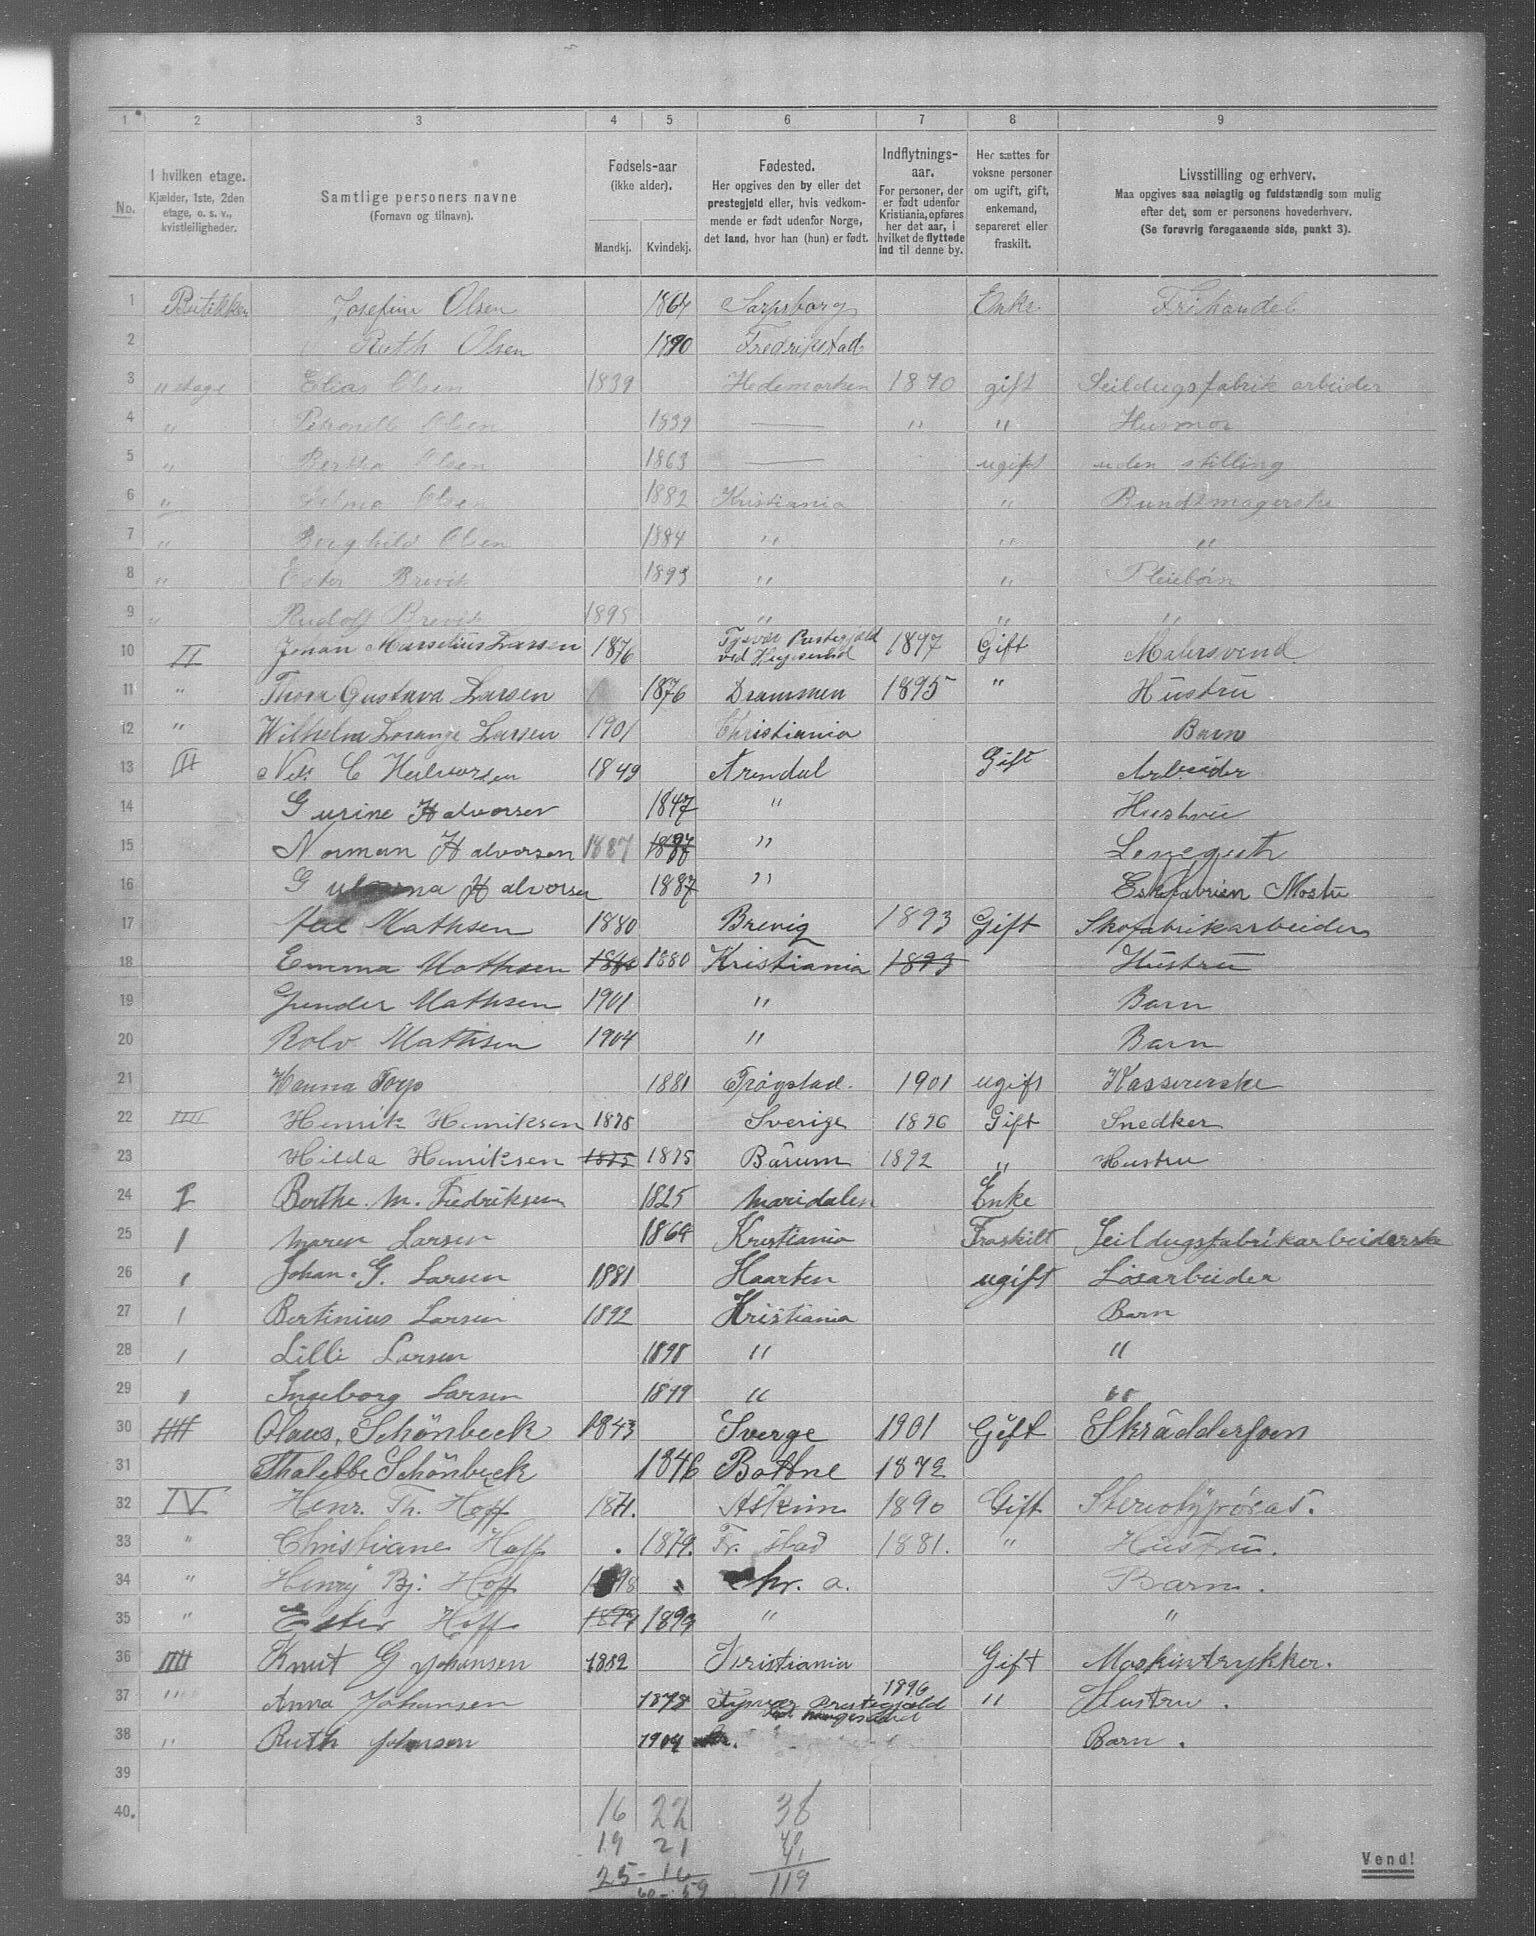 1 2 3 4 5 6 7 8 9
No.
I hvilken etage. Kjælder, 1ste, 2den etage, o. s. v., kvistleiligheder.
Samtlige personers navne (Fornavn og tilnavn).
Fødsels-aar (ikke alder). Mandkj. Kvindekj.
Fødested. Her opgives den by eller det prestegjeld eller, hvis vedkommende er født udenfor Norge, det land, hvor han (hun) er født.
Indflytnings-aar. For personer, der er født udenfor Kristiania, opføres her det aar, i hvilket de flyttede ind til denne by.
Her sættes for voksne personer om ugift, gift, enkemand, separeret eller fraskilt.
Livsstilling og erhverv. Maa opgives saa nøiagtig og fuldstændig som mulig efter det, som er personens hovederhverv. (Se forøvrig foregaaende side, punkt 3).
1 Butikken Josefine Olsen 1864 Sarpsborg Enke Frihandel
2 Ruth Olsen 1890 Fredrikstad
3 " etage Elias Olsen 1839 Hedemarken 1870 gift Seildugsfabrik arbeider
4 " Petronelle Olsen 1839 — " " Husmor
5 " Bertha Olsen 1863 — ugift uden stilling
6 " Olsen 1882 Kristiania " Bundtmagerske
7 " Borghild Olsen 1884 " " "
8 " Ester Brevik 1893 " " Pleiebørn
9 " Rudolf Brevik 1895 " " "
10 II Johan Marselius Larsen 1876 Tysvær Prestegjæld ved 1897 Gift Malersvend
11 " Thora Gustava Larsen 1876 Drammen 1895 " Hustru
12 " Wilhelm Larsen 1901 Christiania Barn
13 III Nels C Halvorsen 1849 Arendal Gift Arbeider
14 Gurine Halvorsen 1847 " Hustru
15 Norman Halvorsen 1887 1887 "
16 G Halvorsen 1887 "
17 Mathsen 1880 Brevig 1893 Gift Skofabrikarbeider
18 Emma Mathsen 1880 1880 Kristiania 1893 Hustru
19 Gunder Mathsen 1901 " Barn
20 Rolv Mathisen 1904 " Barn
21 Hanna Torp 1881 Trøgstad. 1901 ugift Kassererske
22 IIII Henrik Henriksen 1875 Sverige 1896 Gift Snedker
23 Hilda Henriksen 1875 1875 Bärum 1892 " Hustru
24 I Berthe. M. Fredriksen 1825 Maridalen Enke
25 I Maren Larsen 1864 Kristiania Fraskilt Seildugsfabrikarbeiderske
26 I Johan. G. Larsen 1881 Haarten ugift Løsarbeider
27 I Bertinius Larsen 1892 Kristiania Barn
28 I Lilli Larsen 1898 " "
29 I Ingeborg Larsen 1899 " "
30 IIII Olaus, Schönbeck 1843 Sverge 1901 Gift Skrädder
31 Schönbeck 1846 Bottne 1872
32 IV Henr. Th. Hoff 1871. Askim 1890 Gift
33 " Christiane Hoff . 1879. Fr. stad 1881. " Hustru.
34 " Henry Bj. Hoff 1898 Chr. a. Barn.
35 " Ester Hoff 1899 1899 " "
36 IIII Knut G Johansen 1882 Kristiania Gift Maskintrykker.
37 "" Anna Johansen 1878 Tysvær Prestegjæld ved Haugesund 1896 " Hustru.
38 " Ruth Johansen 1904 Barn.
39
40. 16 22 38
19 21 40
41
25 - 16 119
60 - 59
Vend!